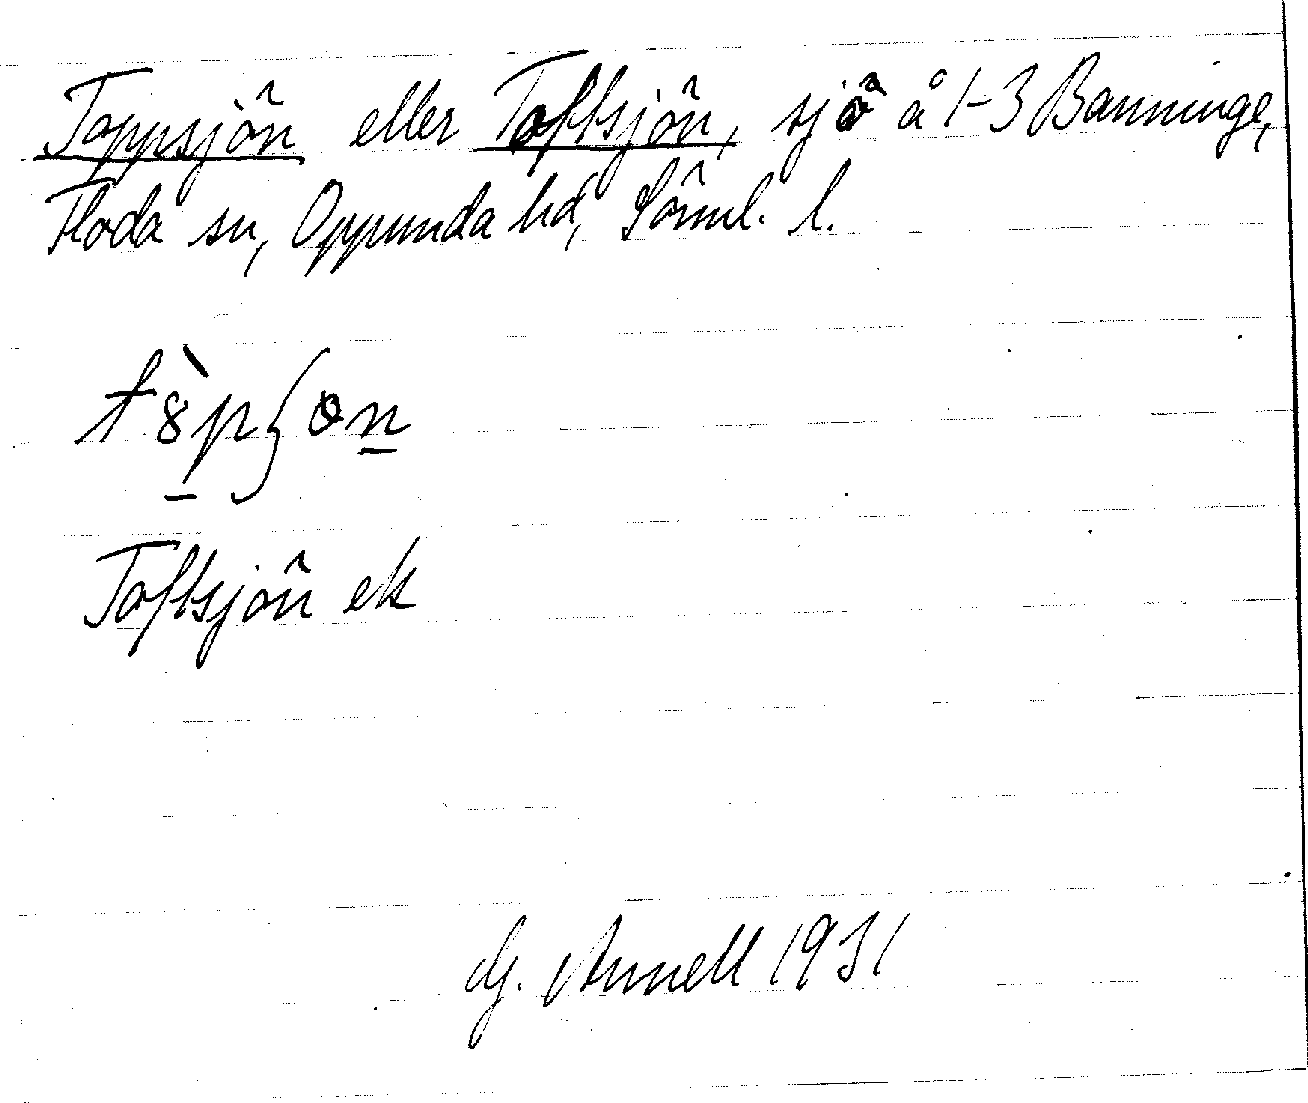 Toppsjön eller Toftsjön, sjö å 1-3 Banninge,
Floda sn, Oppunda hd, Söml. l.
tòpʃɵn
Toftsjön ek
G. Annell 1931